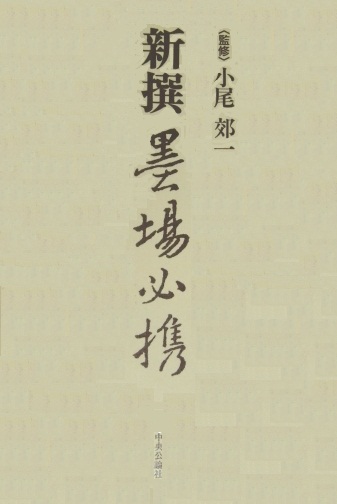 〈監修〉小尾 郊一
新撰 墨場必携
中央公論社